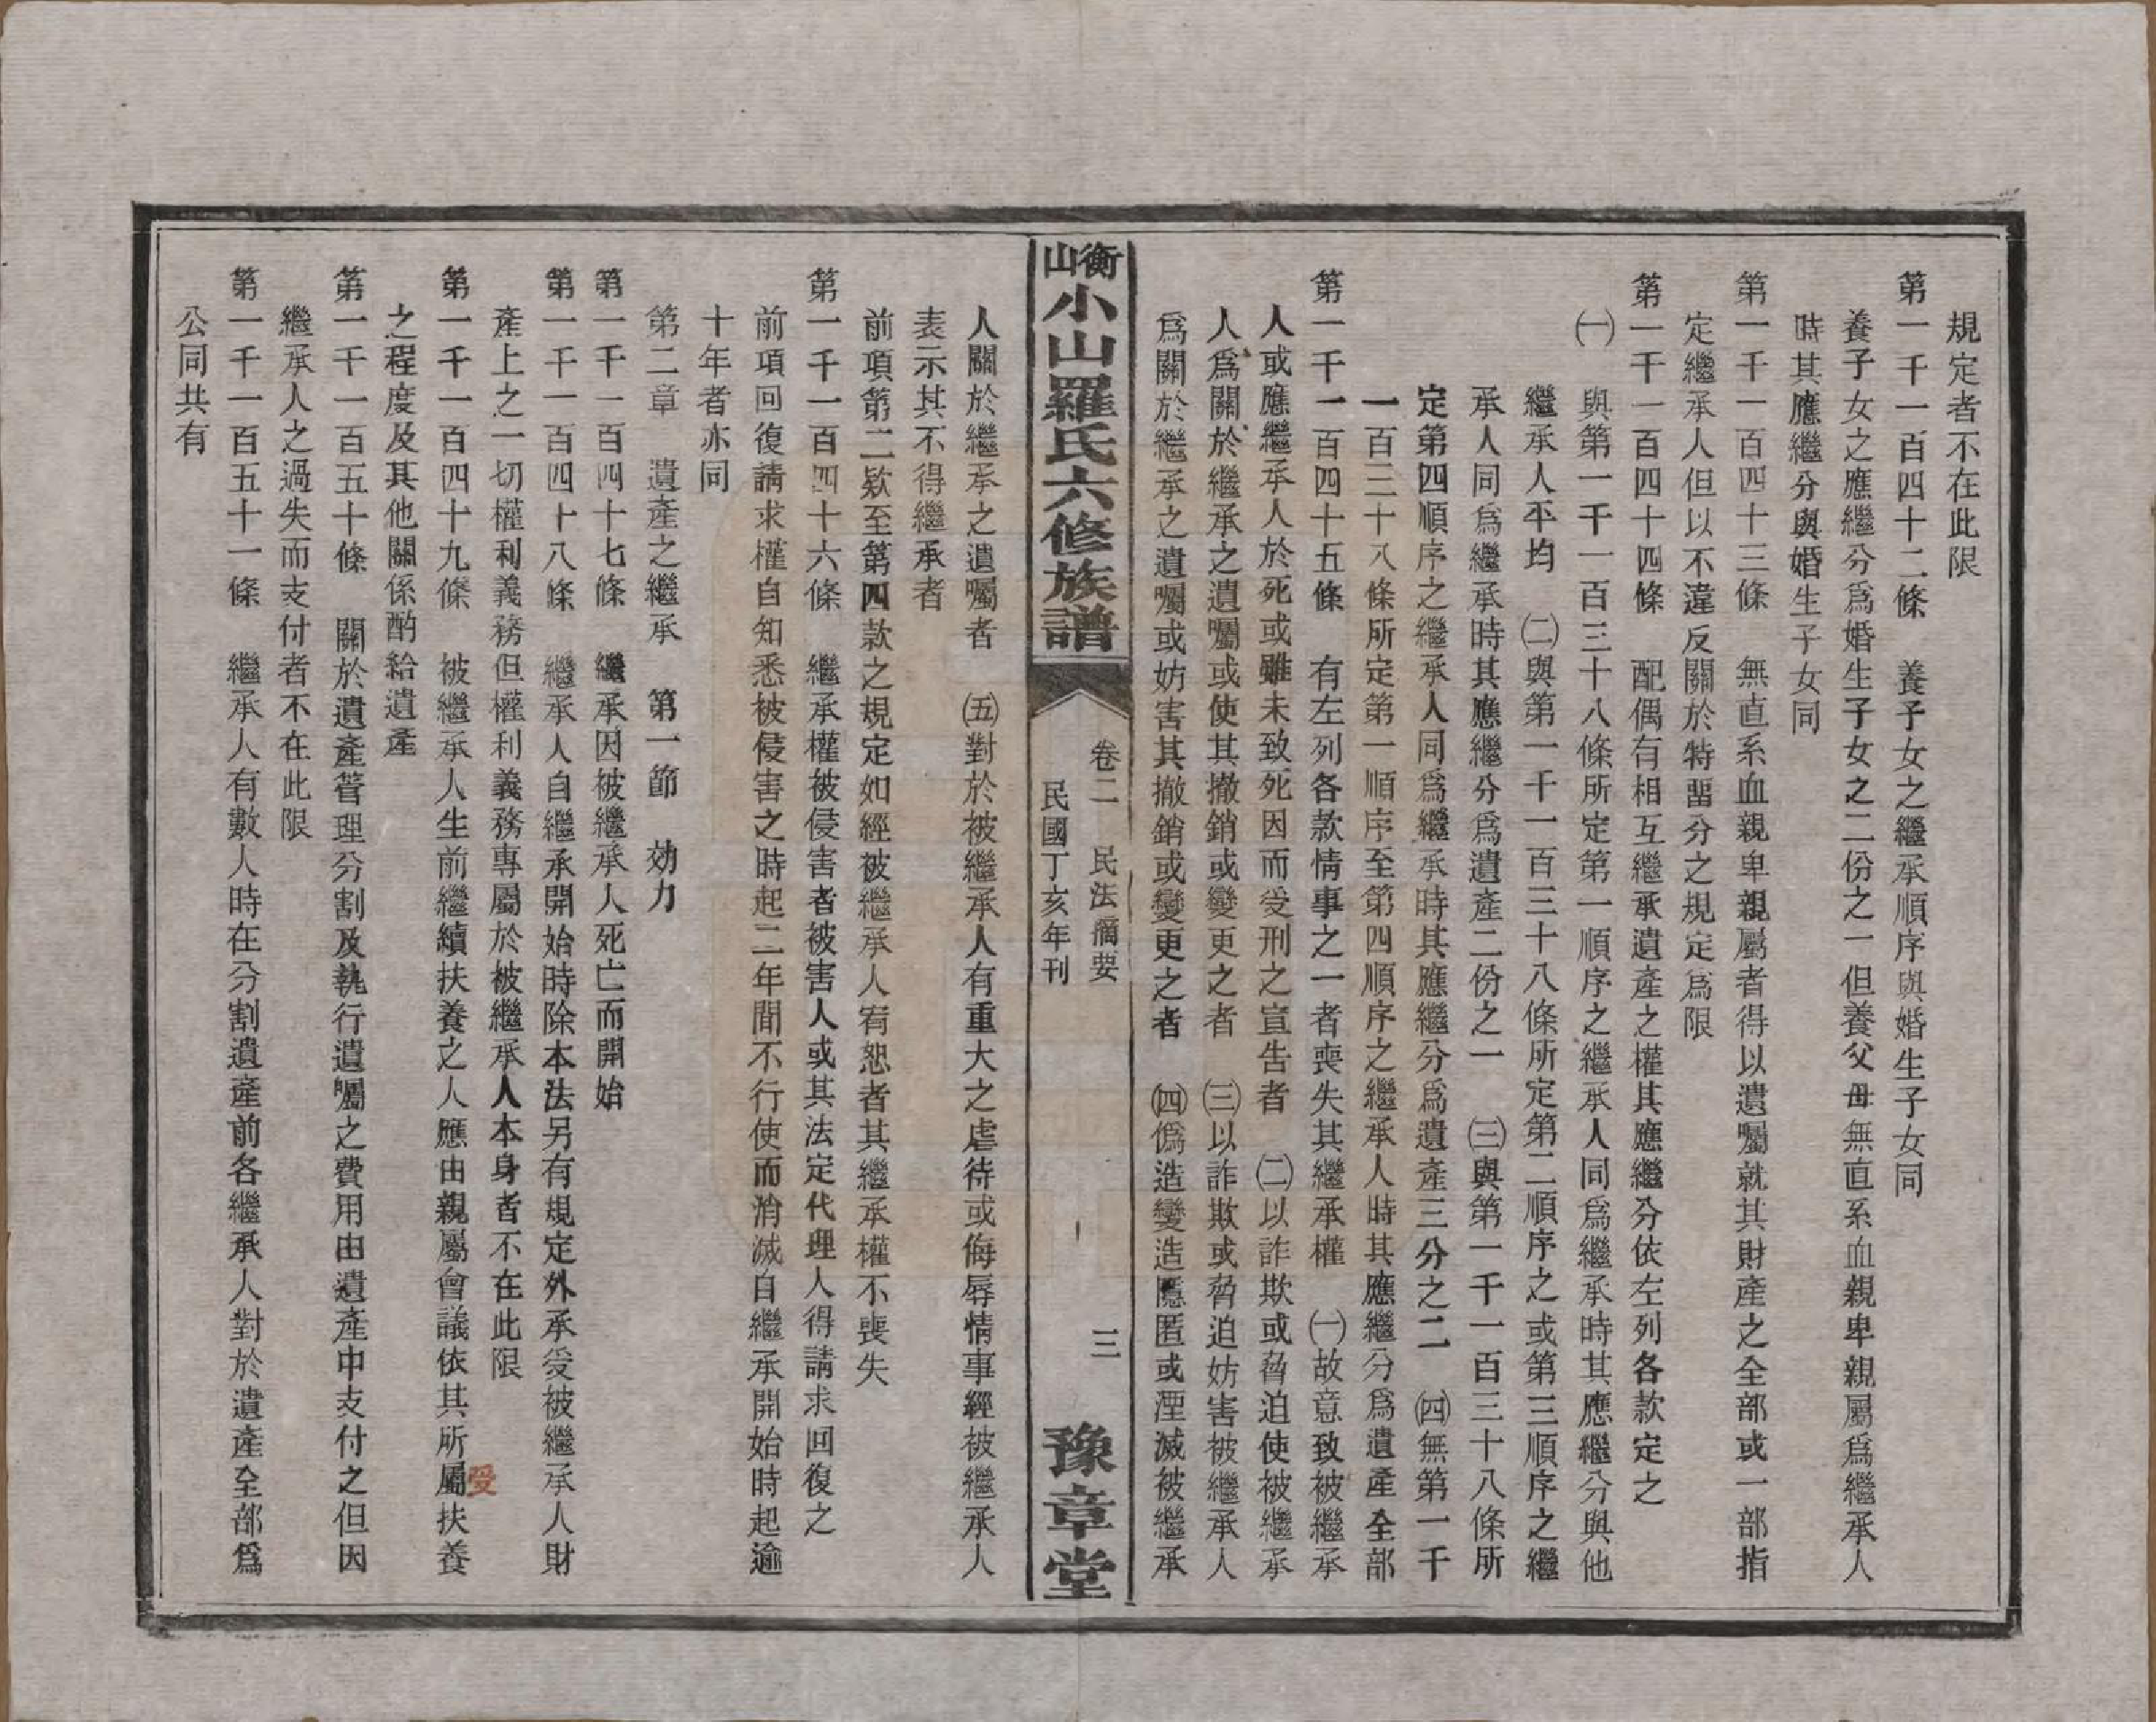 規定者不在此限
第一千一百四十二條　養子女之繼承順序與婚生子女同
養子女之應繼分爲婚生子女之二份之一但養父母無直系血親卑親屬爲繼承人
時其應繼分與婚生子女同
第一千一百四十三條　無直系血親卑親屬者得以遺囑就其財產之全部或一部指
定繼承人但以不違反關於特留分之規定爲限
第一千一百四十四條　配偶有相互繼承遺產之權其應繼分依左列各款定之
㈠　與第一千一百三十八條所定第一順序之繼承人同爲繼承時其應繼分與他
繼承人平均　㈡與第一千一百三十八條所定第二順序之或第三順序之繼
承人同爲繼承時其應繼分爲遺產二份之一　㈢與第一千一百三十八條所
定第四順序之繼承人同爲繼承時其應繼分爲遺產三分之二　㈣無第一千
一百三十八條所定第一順序至第四順序之繼承人時其應繼分爲遺產全部
第一千一百四十五條　有左列各款情事之一者喪失其繼承權　㈠故意致被繼承
人或應繼承人於死或雖未致死因而受刑之宣告者　㈡以詐欺或脅迫使被繼承
人爲關於繼承之遺囑或使其撤銷或變更之者　㈢以詐欺或脅迫妨害被繼承人
爲關於繼承之遺囑或妨害其撤銷或變更之者　㈣僞造變造隱匿或湮滅被繼承
衡山小山羅氏六修族譜
卷二　民法摘要　三
民國丁亥年刊
豫章堂
人關於繼承之遺囑者　㈤對於被繼承人有重大之虐待或侮辱情事經被繼承人
表示其不得繼承者
前項第二欵至第四款之規定如經被繼承人宥恕者其繼承權不喪失
第一千一百四十六條　繼承權被侵害者被害人或其法定代理人得請求回復之
前項回復請求權自知悉被侵害之時起二年間不行使而消滅自繼承開始時起逾
十年者亦同
第二章　遺產之繼承　第一節　効力
第一千一百四十七條　繼承因被繼承人死亡而開始
第一千一百四十八條　繼承人自繼承開始時除本法另有規定外承受被繼承人財
產上之一切權利義務但權利義務專屬於被繼承人本身者不在此限
受
第一千一百四十九條　被繼承人生前繼續扶養之人應由親屬會議依其所屬扶養
之程度及其他關係酌給遺產
第一千一百五十條　關於遺產管理分割及執行遺囑之費用由遺產中支付之但因
繼承人之過失而支付者不在此限
第一千一百五十一條　繼承人有數人時在分割遺產前各繼承人對於遺產全部爲
公同共有